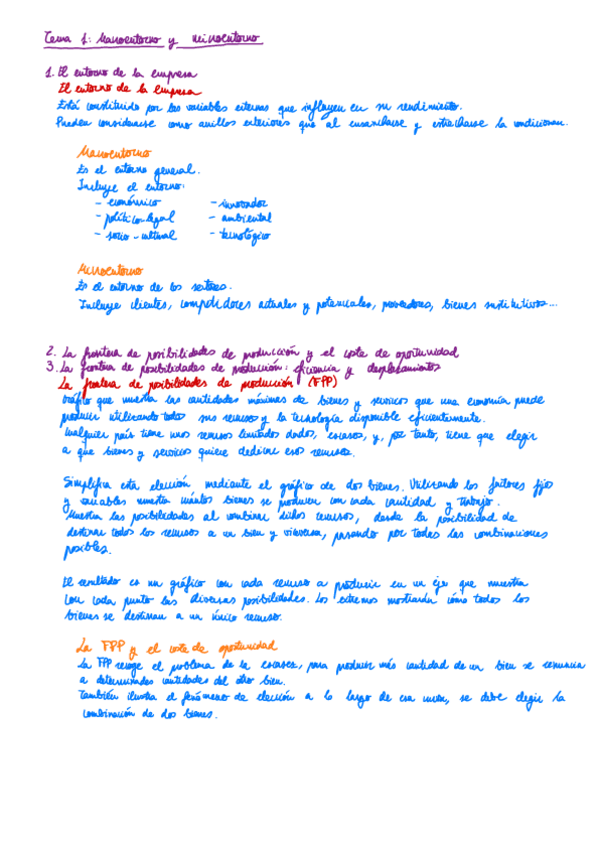 Tema 1: Macroentorno y microentorno
1. El entorno de la empresa
El entorno de la empresa
Está constituido por las variables externas que influyen en su rendimiento.
Pueden considerarse como anillos exteriores que al ensancharse y estrecharse la condicionan.
Macroentorno
Es el entorno general.
Incluye el entorno:
- económico - innovador
- político-legal - ambiental
- socio-cultural - tecnológico
Microentorno
Es el entorno de los sectores.
Incluye clientes, competidores actuales y potenciales, proveedores, bienes sustitutivos...
2. La frontera de posibilidades de producción y el coste de oportunidad
3. La frontera de posibilidades de producción: eficiencia y desplazamientos
La frontera de posibilidades de producción (FPP)
Gráfico que muestra las cantidades máximas de bienes y servicios que una economía puede
producir utilizando todos sus recursos y la tecnología disponible eficientemente.
Cualquier país tiene unos recursos limitados dados, escasos, y, por tanto, tiene que elegir
a que bienes y servicios quiere dedicar esos recursos.
Simplifica esta elección mediante el gráfico de dos bienes. Utilizando los factores fijos
y variables muestra cuántos bienes se producen con cada cantidad y trabajo.
Muestra las posibilidades al combinar dichos recursos, desde la posibilidad de
destinar todos los recursos a un bien y viceversa, pasando por todas las combinaciones
posibles.
El resultado es un gráfico con cada recurso a producir en un eje que muestra
con cada punto las diversas posibilidades. Los extremos mostrarán cómo todos los
bienes se destinan a un único recurso.
La FPP y el coste de oportunidad
La FPP recoge el problema de la escasez, para producir más cantidad de un bien se renuncia
a determinadas cantidades del otro bien.
También ilustra el fenómeno de elección a lo largo de esa curva, se debe elegir la
combinación de dos bienes.